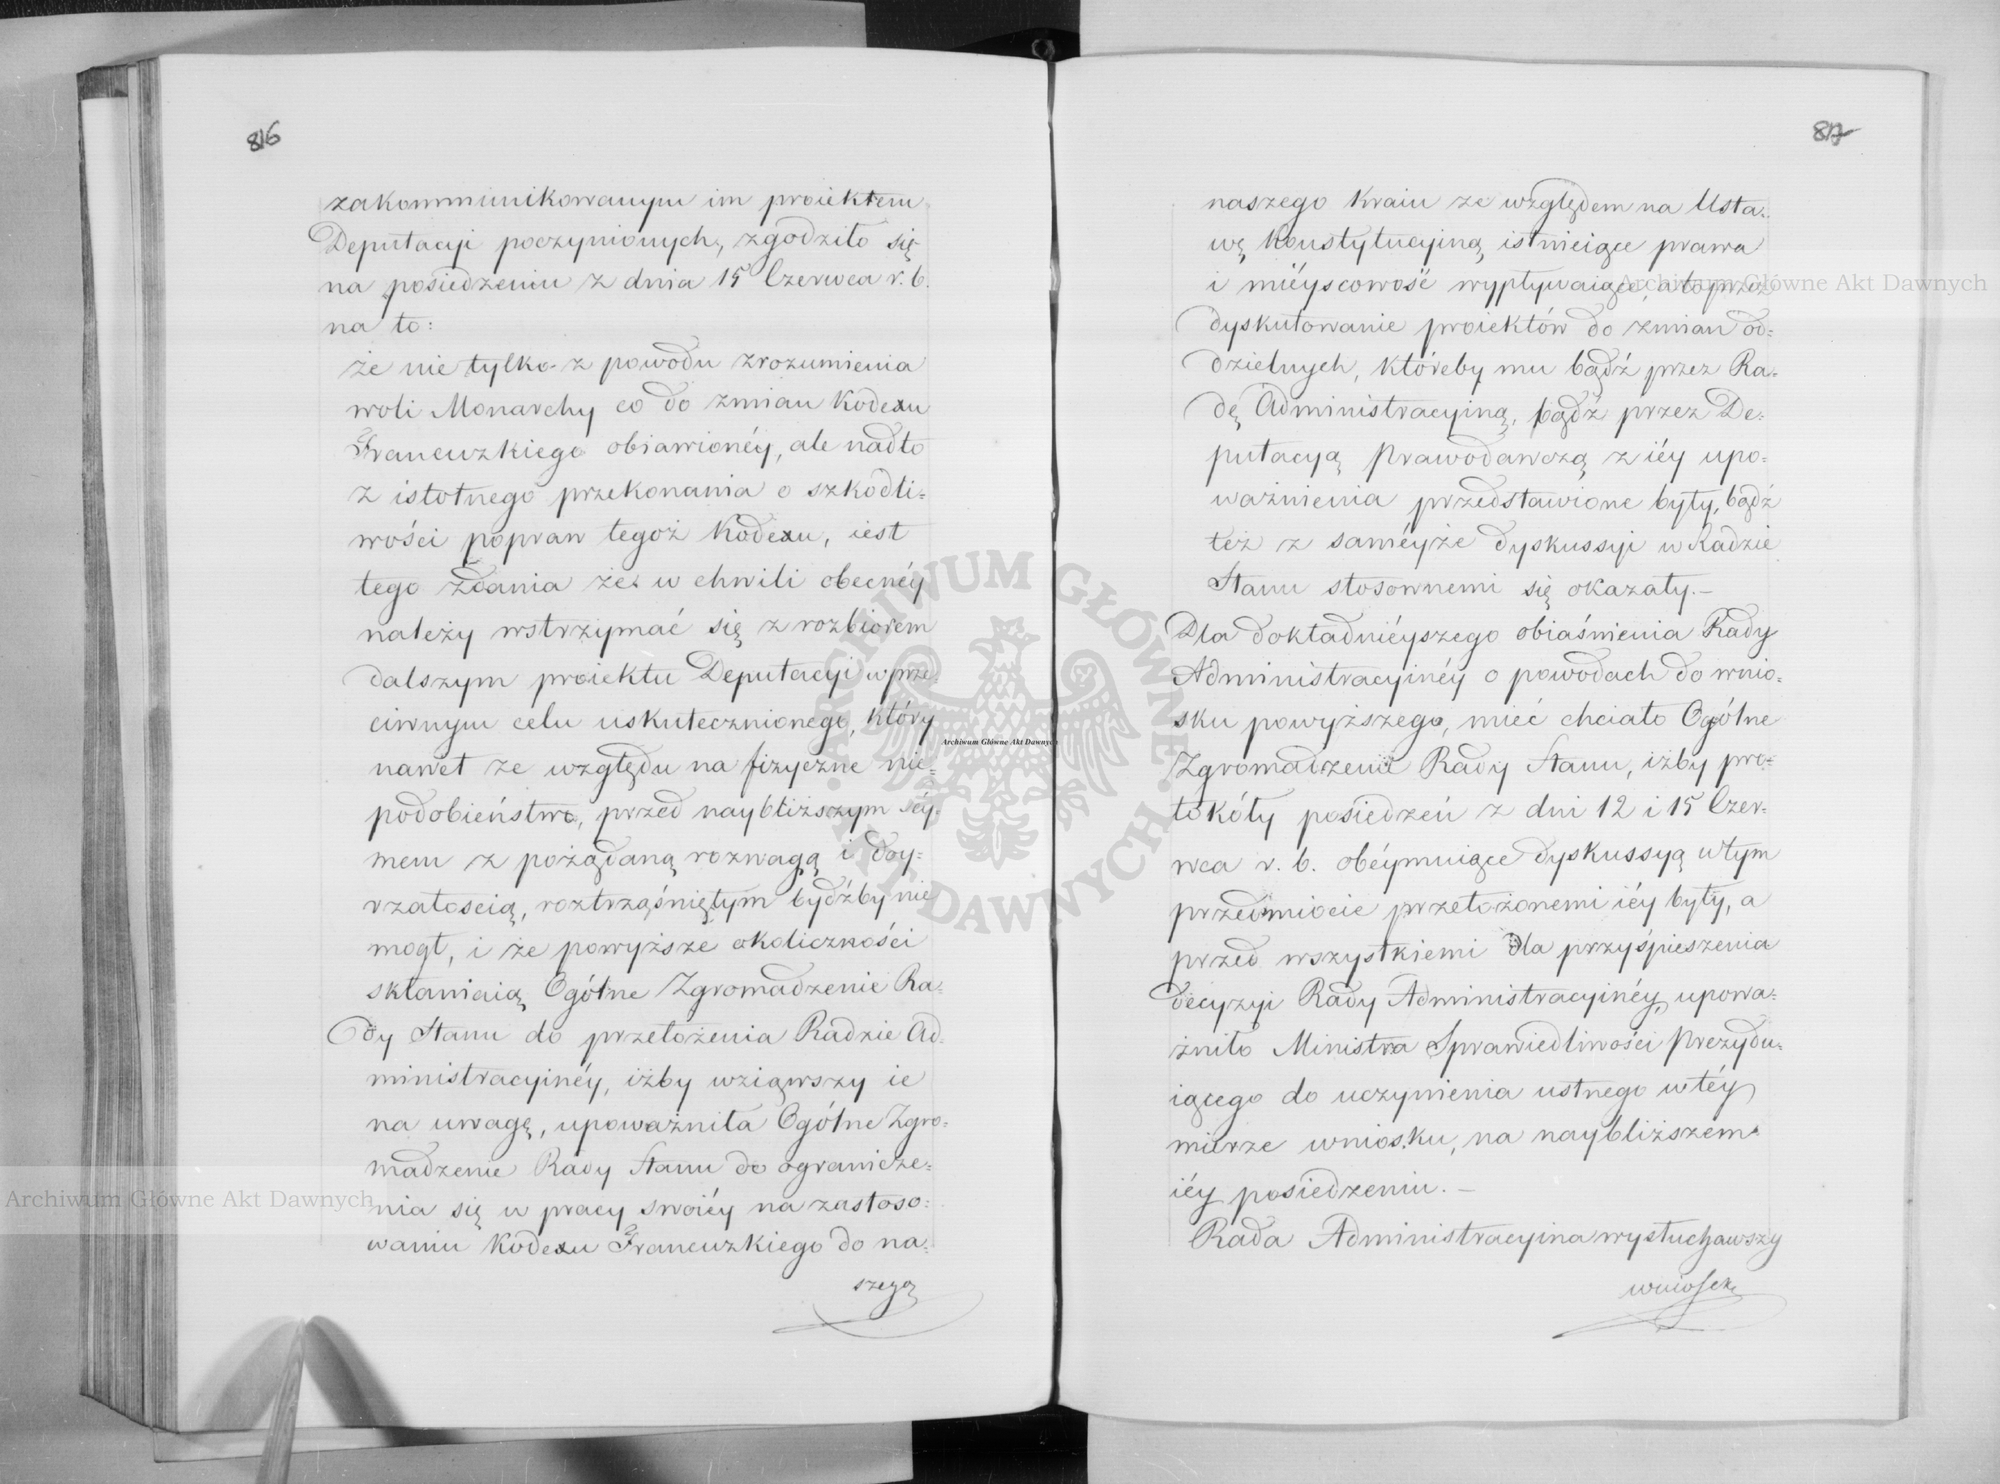 816
zakommunikowanym im proiektem
Deputacyi poczynionych, zgodziło się
na posiedzeniu z dnia 15 Czerwca r. b.
na to:
że nie tylko z powodu zrozumienia
woli Monarchy co do zmian Kodexu
Francuzkiego obiawionéy, ale nadto
z istotnego przekonania o szkodli=
wości popraw tegoż Kodexu, iest
tego zdania że w chwili obecnéy
należy wstrzymać się z rozbiorem
dalszym proiektu Deputacyi w prze=
ciwnym celu uskutecznionego, który
nawet ze względu na fizyczne nie=
podobieństwo, przed naybliższym séy=
mem z pożądaną rozwagą i doy=
rzałością, roztrząśniętym bydźby nie
mogł, i że powyższe okoliczności
skłaniaią Ogólne Zgromadzenie Ra=
dy Stanu do przełożenia Radzie Ad=
ministracyinéy, iżby wziąwszy ie
na uwagę, upoważniła Ogólne Zgro=
madzenie Rady Stanu do ogranicze=
nia się w pracy swoiéy na zastoso=
waniu Kodexu Francuzkiego do na=
szego
817
naszego Kraiu ze względem na Usta=
wę Konstytucyiną, istnieiące prawa
i miéyscowość wypływaiące, a to przez
dyskutowanie proiektów do zmian od=
dzielnych, któreby mu bądź przez Ra=
dę Administracyiną, bądź przez De=
putacyą Prawodawczą z iéy upo=
ważnienia przedstawione były, bądź
też z saméyże dyskussyi w Radzie
Stanu stosownemi się okazały.—
Dla dokładniéyszego obiaśnienia Rady
Administracyinéy o powodach do wnio=
sku powyższego, mieć chciało Ogólne
Zgromadzenie Rady Stanu, iżby pro=
tokóły posiedzeń z dni 12 i 15 Czer=
wca r. b. obéymuiące dyskussyą w tym
przedmiocie przełożonemi iéy były, a
przed wszystkiemi dla przyśpieszenia
decyzyi Rady Administracyinéy, upowa=
żniło Ministra Sprawiedliwości Prezydu=
iącego do uczynienia ustnego w téy
mierze wniosku, na naybliższem
iéy posiedzeniu.—
Rada Administracyina wysłuchawszy
wniosek
Archiwum Główne Akt Dawnych
Archiwum Główne Akt Dawnych
Archiwum Główne Akt Dawnych
ARCHIWUM GŁÓWNE
AKT DAWNYCH